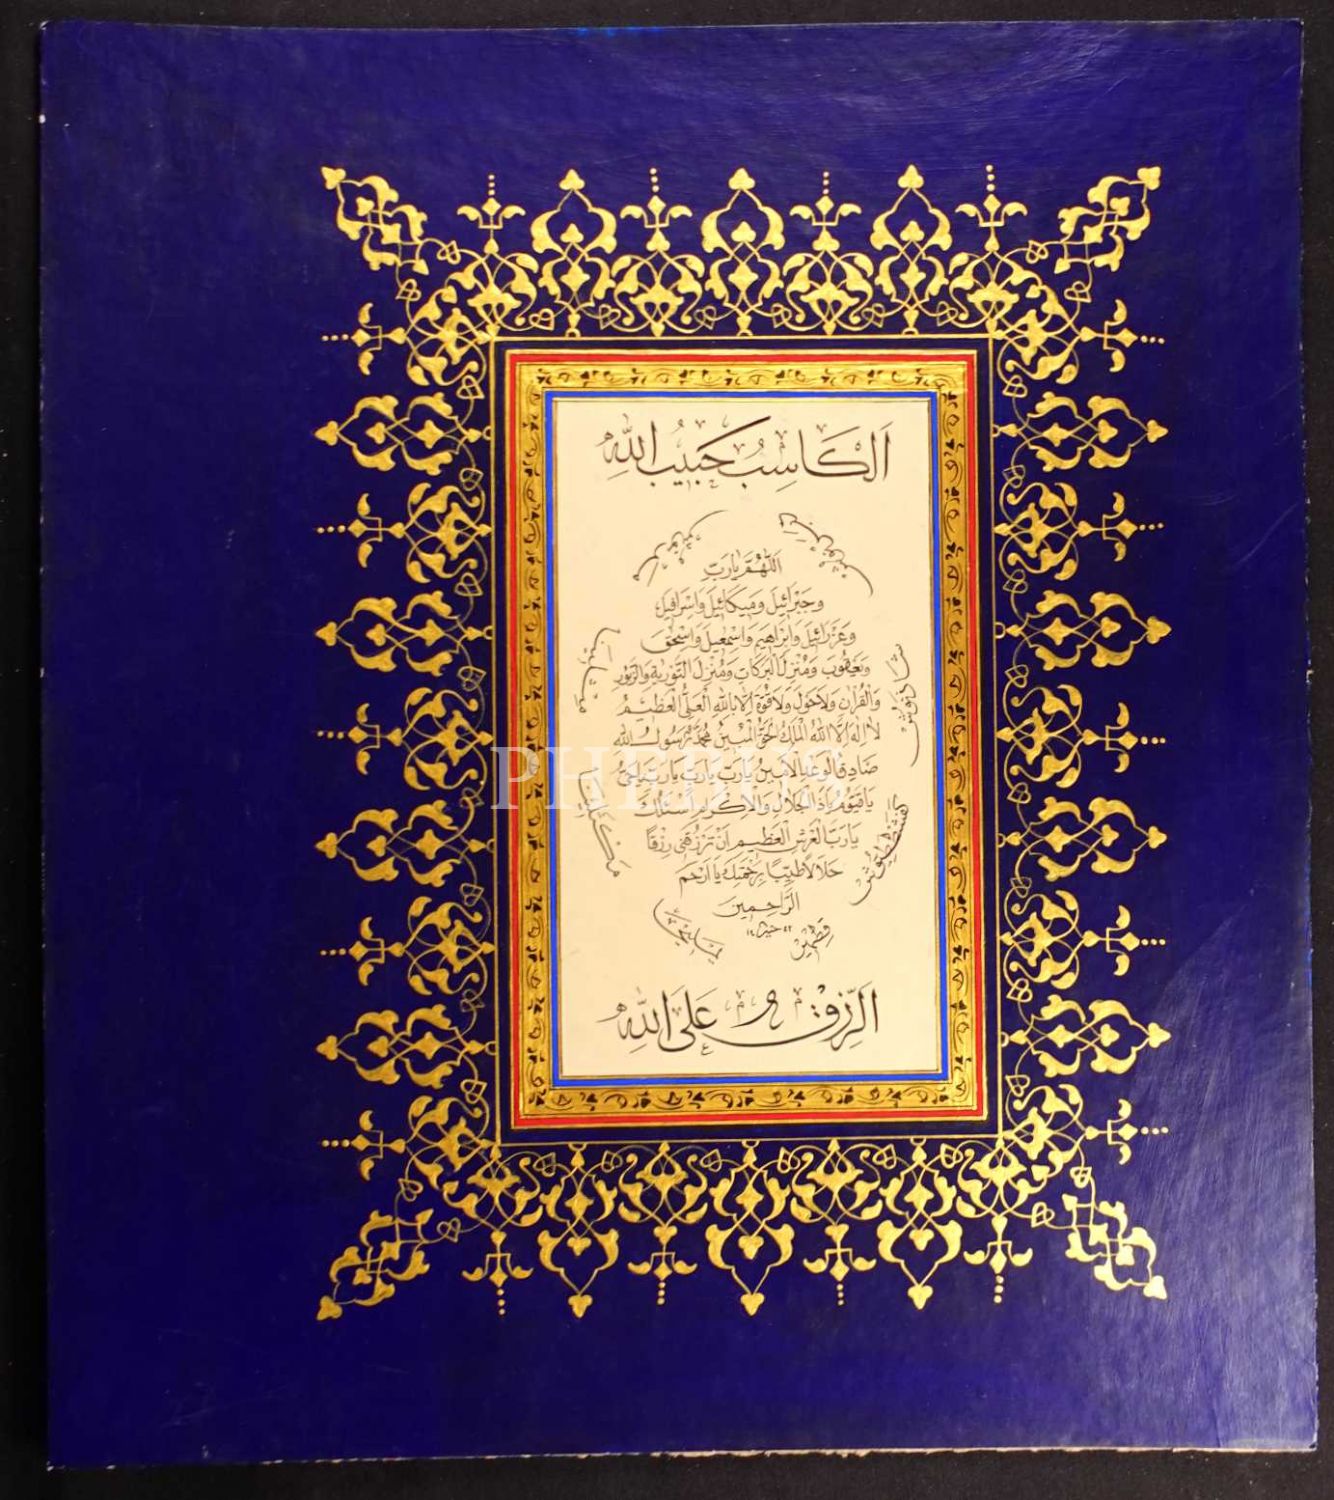 اَلْكَاسِبُ حَبِيبُ اللهِ
اَللّٰهُمَّ يَارَبِّ
وَجَبْرَائِيلَ وَمِيكَائِيلَ وَاِسْرَافِيلَ
وَعَزْرَائِيلَ وَاِبْرَاهِيمَ وَاِسْمٰعِيلَ وَاِسْحٰقَ
وَيَعْقُوبَ وَمُنْزِلَ الْبَرَكَاتِ وَمُنْزِلَ التَّوْرٰيةِ وَالزَّبُورِ
وَالْقُرْاٰنِ وَلَاحَوْلَ وَلَاقُوَّةَ اِلَّا بِاللهِ الْعَلِيِّ الْعَظِيمِ
لَا اِلٰهَ اِلَّا اللهُ الْمَلِكُ الْحَقُّ الْمُبِينُ مُحَمَّدٌ رَسُولُ اللهِ
صَادِقُ الْوَعْدِ الْاَمِينُ يَارَبِّ يَارَبِّ يَارَبِّ يَاحَيُّ
يَاقَيُّومُ يَاذَا الْجَلَالِ وَالْاِكْرَامِ اَسْئَلُكَ
يَارَبَّ الْعَرْشِ الْعَظِيمِ اَنْ تَرْزُقَنِي رِزْقًا
حَلَالًا طَيِّبًا بِرَحْمَتِكَ يَا اَرْحَمَ
الرَّاحِمِينَ
يَمْلِيخَا
مَكْثَلِينَا
مَثْلِينَا
مَرْنُوشْ
دَبَرْنُوشْ
شَاذَنُوشْ
كَفَشْطَطَيُوشْ
قِطْمِيرْ
PHEBUS
اَلرِّزْقُ عَلَى اللهِ